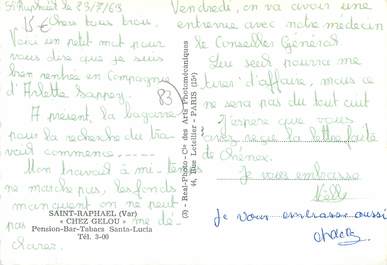 St Raphaël le 23/7/63
Chers tous trois.
Voici un petit mot pour
vous dire que je suis
bien rentrée en Compagnie
d'Arlette Sappey.
A présent, la bagarre
pour la recherche du tra-
vail commence
Mon travail à mi-temps
ne marche pas, les fonds
manquent on ne peut
pas me dé-
clarer.
SAINT-RAPHAEL (Var)
« CHEZ GELOU »
Pension-Bar-Tabacs Santa-Lucia
Tél. 3-00
15€
83
(3) - Réal-Photo - Cie des Arts Photomécaniques
44, Rue Letellier - PARIS (15e)
Vendredi, on va avoir une
entrevue avec notre médecin
le Conseiller Général
Leu seul pourra me
tirer d'affaire, mais ce
ne sera pas du tout cuit
J'espère que vous
avez reçu la lettre
de
Je vous embrasse
Je vous embrasse aussi